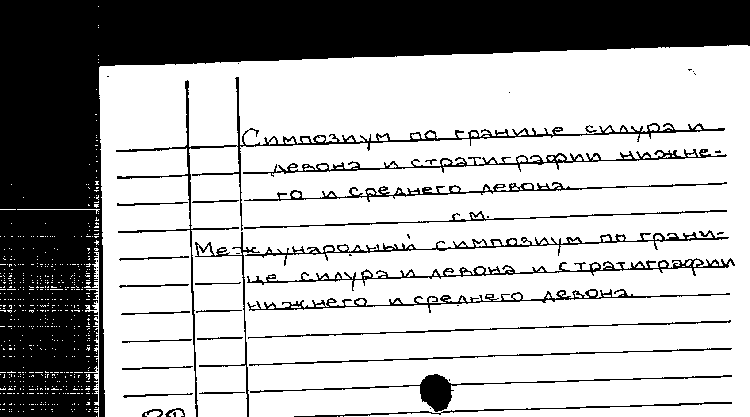 Симпозиум по границе силура и
девона и стратиграфии нижне-
го и среднего девона.
см.
Международный симпозиум по грани-
це силура и девона и стратиграфии
нижнего и среднего девона.